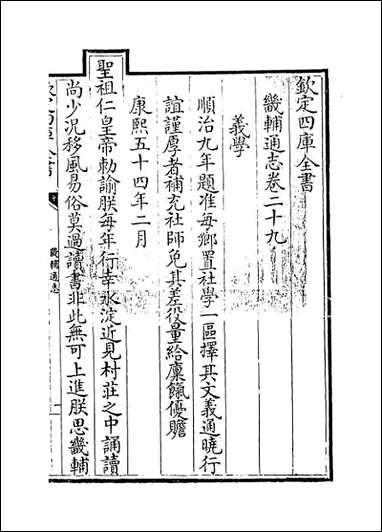 欽定四庫全書
畿輔通志卷二十九
義學
順治九年題准每鄉置社學一區擇其文義通曉行
誼謹厚者補充社師免其差役量給廩餼優贍
康熙五十四年二月
聖祖仁皇帝勅諭朕每年行幸水淀近見村莊之中誦讀
尚少况移風易俗莫過讀書非此無可上進朕思畿輔
畿輔通志